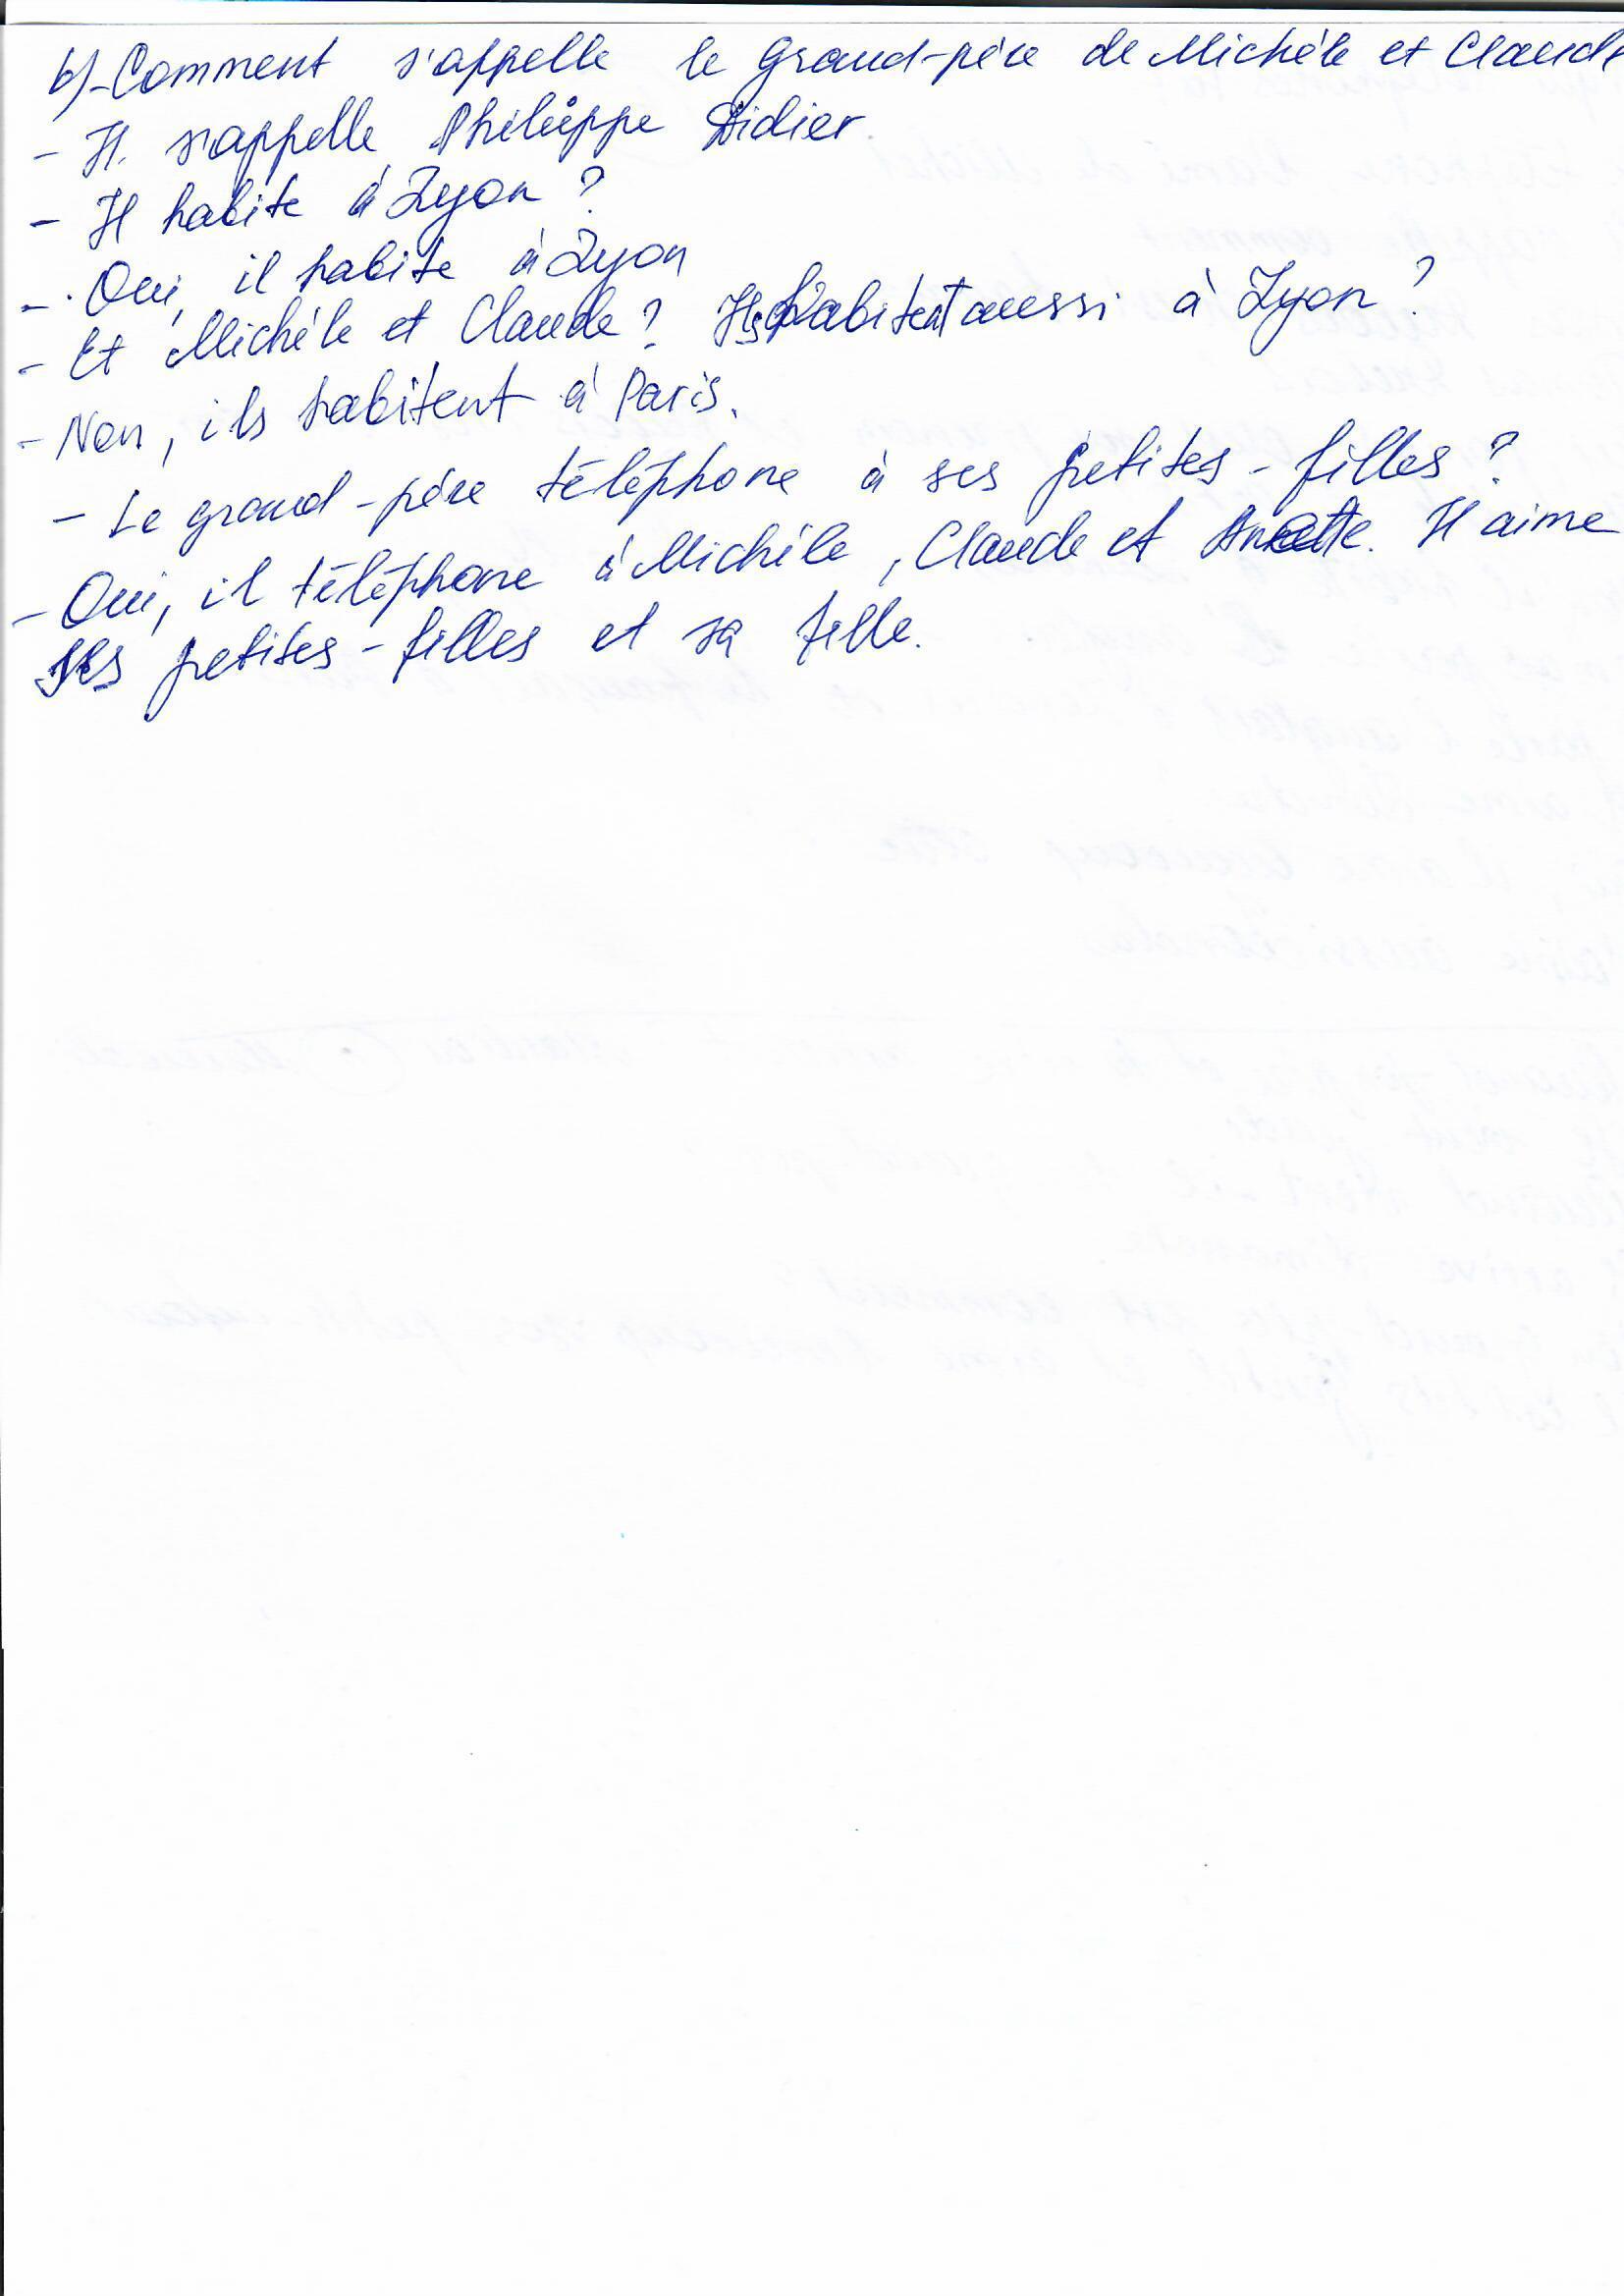 b) - Comment s'appelle le Grand-père de Michèle et Claude
- Il s'appelle Philippe Didier.
- Il habite à Lyon ?
- Oui, il habite à Lyon
- Et Michèle et Claude ? Ils habitent aussi à Lyon ?
- Non, ils habitent à Paris.
- Le grand-père téléphone à ses petites-filles ?
- Oui, il téléphone à Michèle, Claude et Anette. Il aime
ses petites-filles et sa fille.